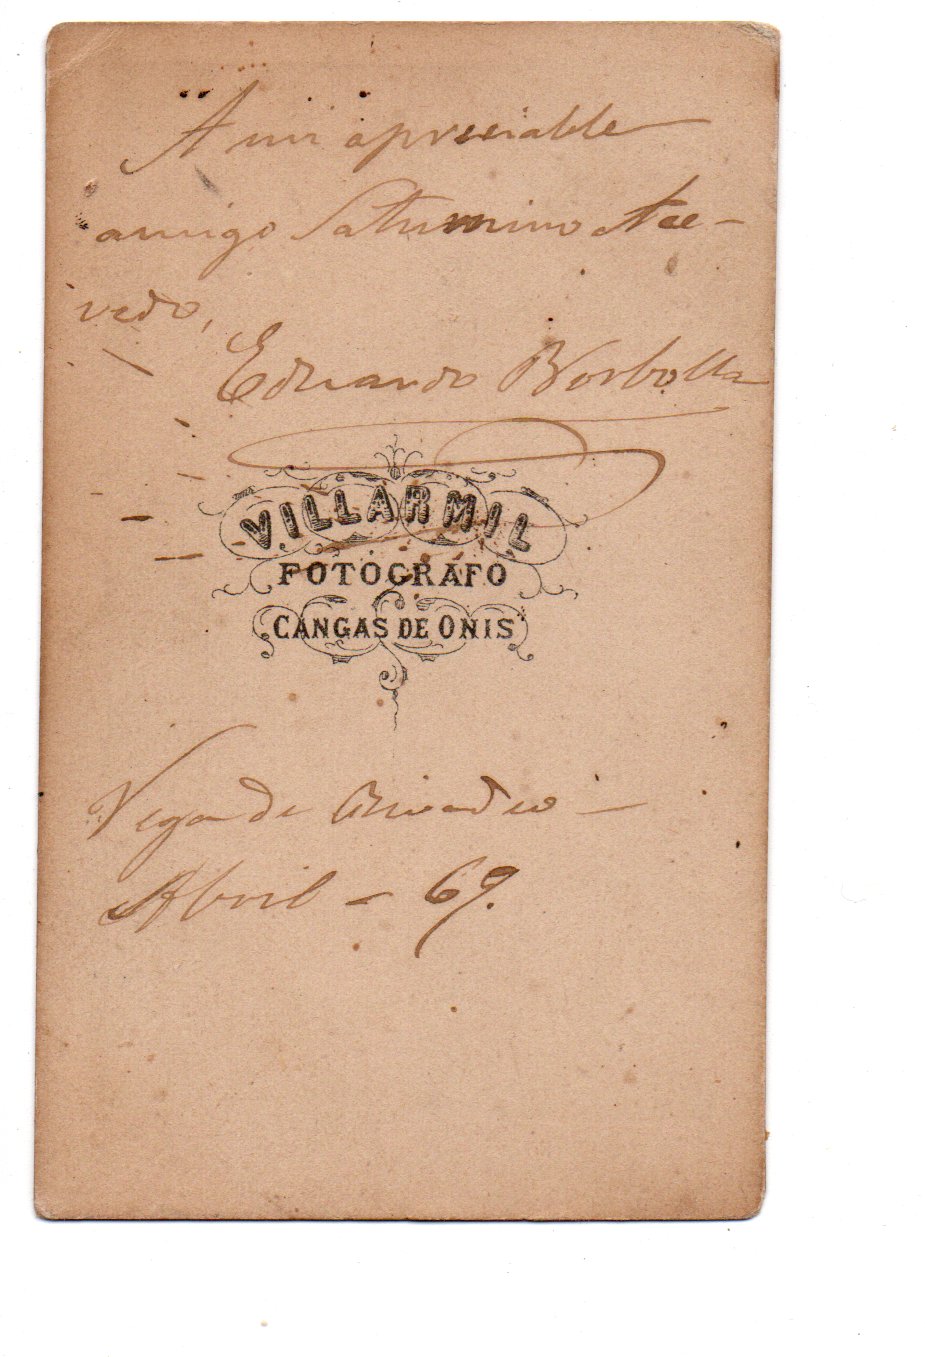 A mi apreciable
amigo Saturnino Ace-
vedo,
Eduardo Borbolla
VILLARMIL
FOTÓGRAFO
CANGAS DE ONIS
Vega de Rivadeo
Abril - 69.